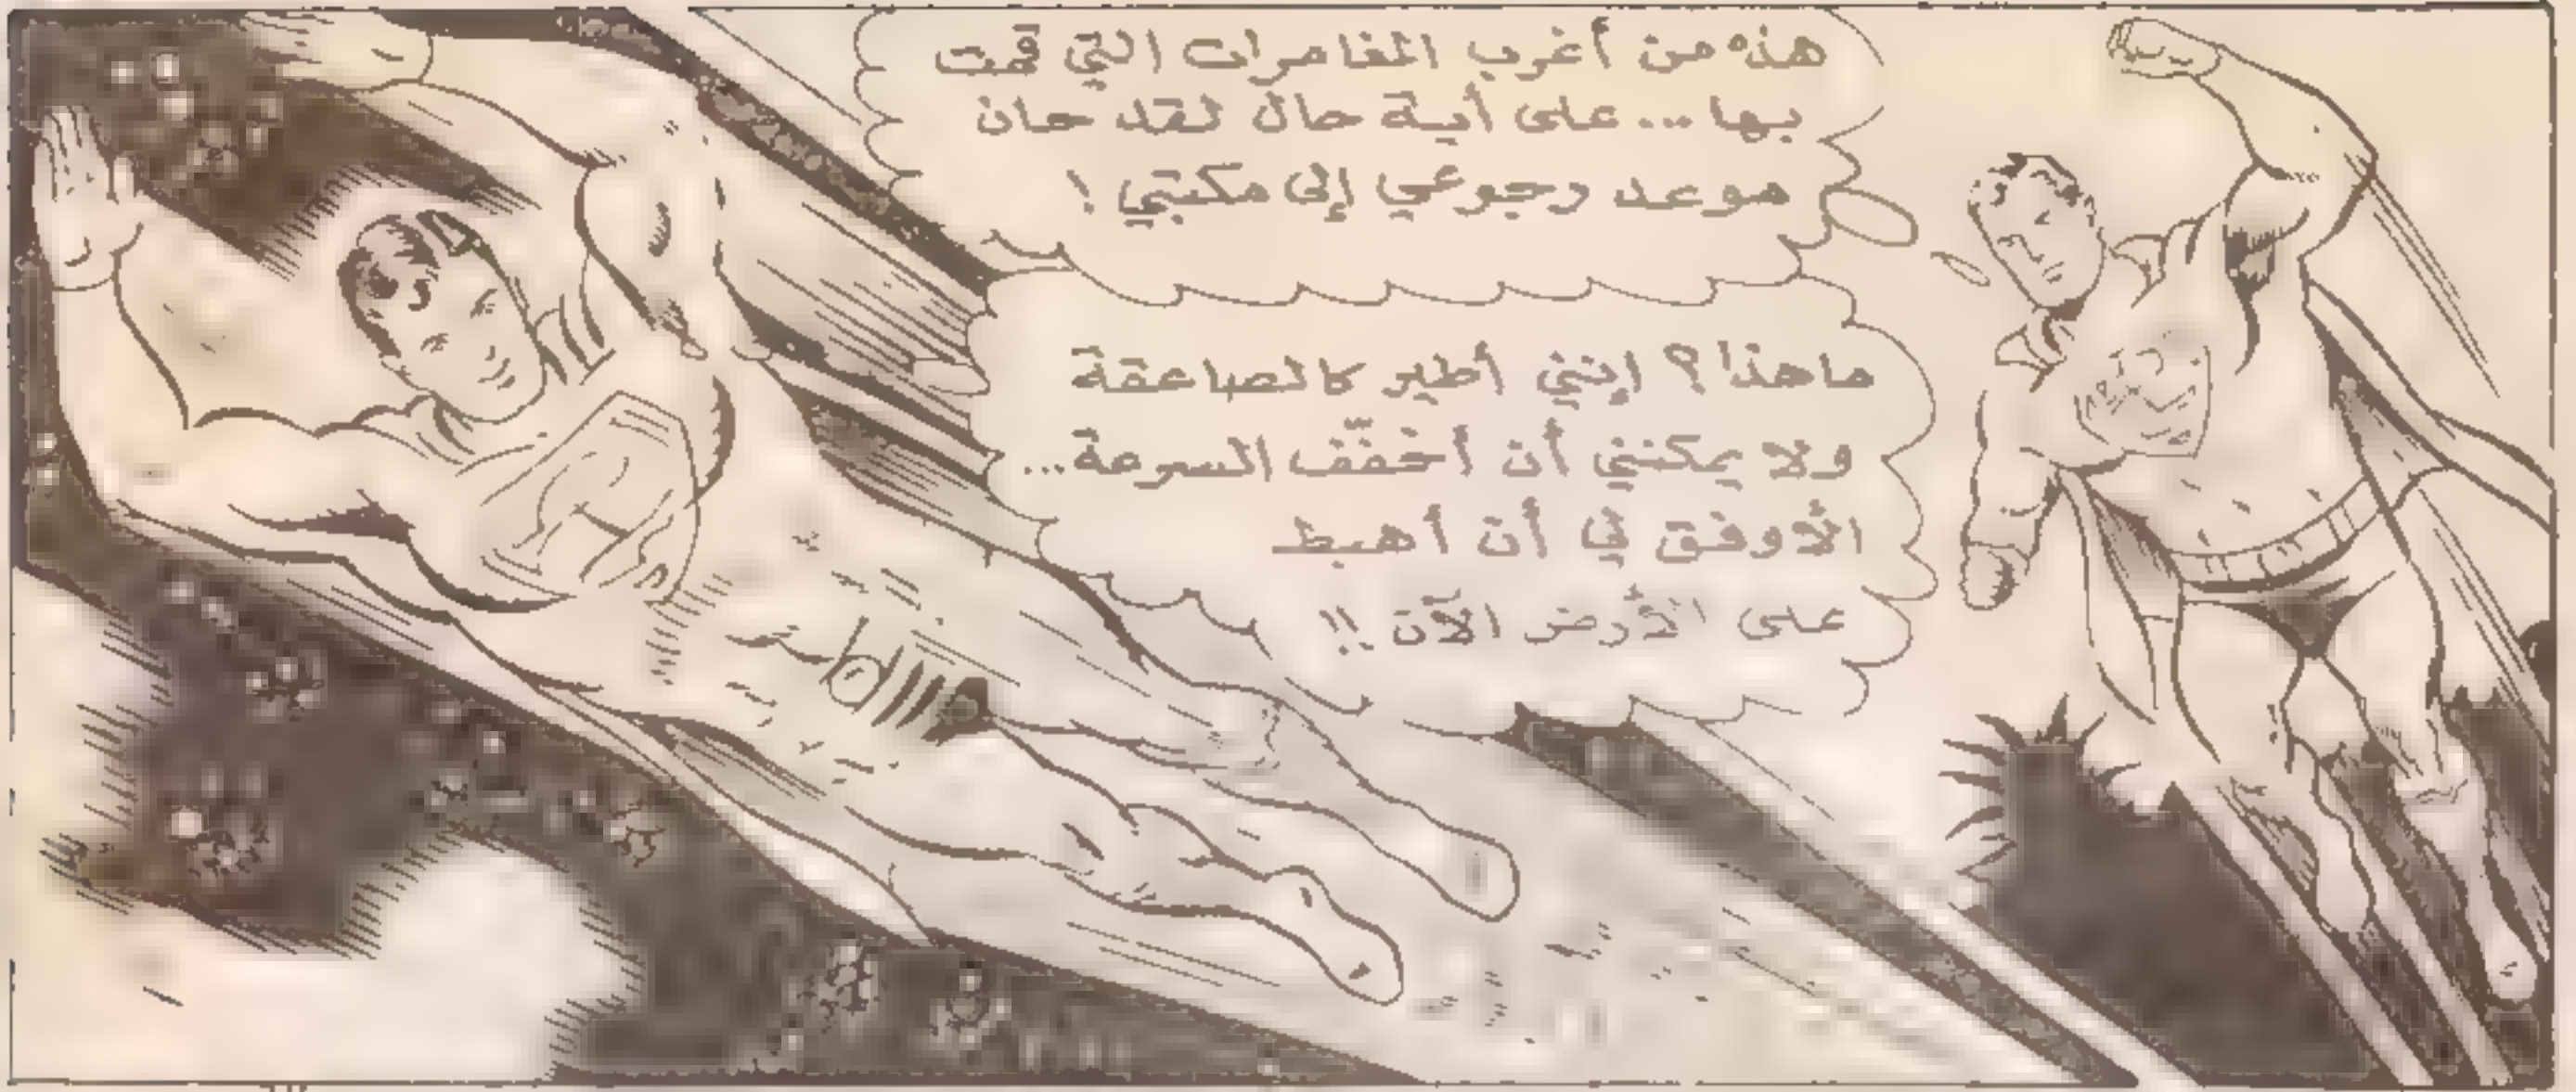 هذه من أغرب المغامرات التي قمت
بها... على أية حال لقد حان
موعد رجوعي إلى مكتبي !
ما هذا؟ إنني أطير كالصاعقة
ولا يمكنني أن أخفّف السرعة...
الأوفق لي أن أهبط
على الأرض الآن !!